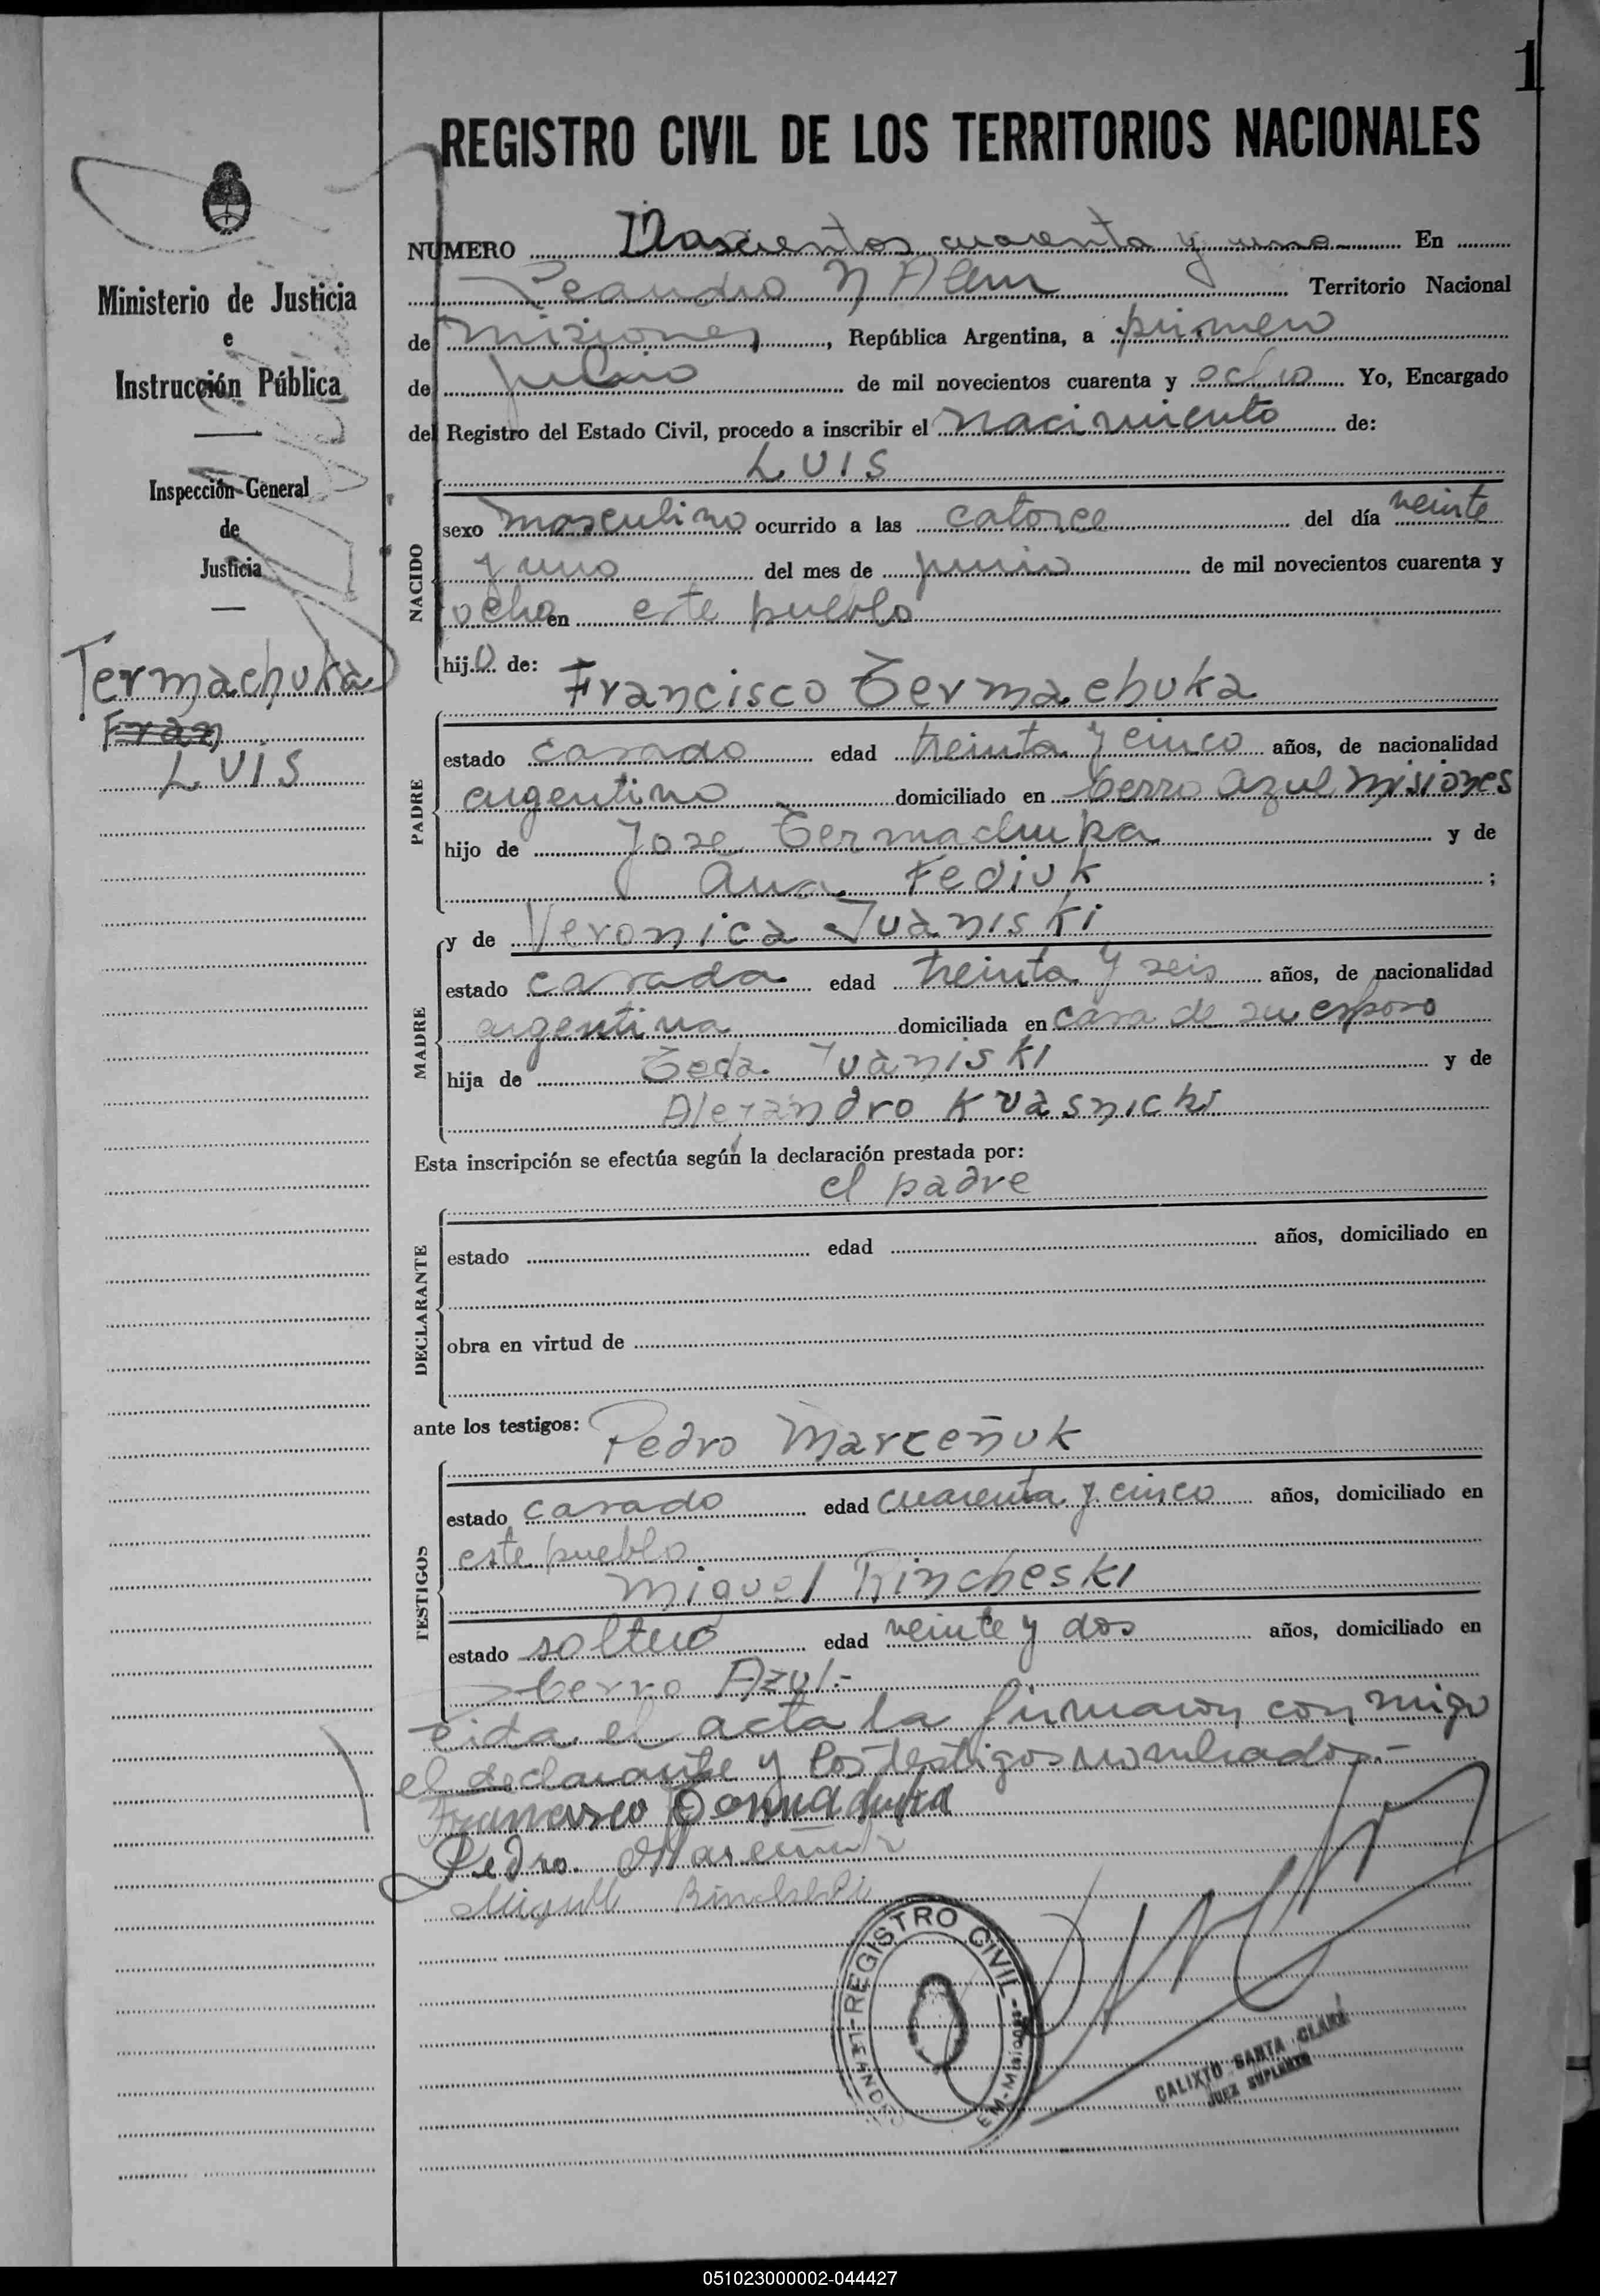 1
REGISTRO CIVIL DE LOS TERRITORIOS NACIONALES
Ministerio de Justicia
e
Instrucción Pública
Inspección General
de
Justicia
Termachuka
Fran
LUIS
NUMERO Doscientos cuarenta y uno En
Leandro N Alem Territorio Nacional
de misiones, República Argentina, a primero
de julio de mil novecientos cuarenta y ocho Yo, Encargado
del Registro del Estado Civil, procedo a inscribir el nacimiento de:
LUIS
NACIDO
sexo masculino ocurrido a las catorce del día veinte
y uno del mes de junio de mil novecientos cuarenta y
ocho en este pueblo
hijo de: Francisco Termachuka
PADRE
estado casado edad treinta y cinco años, de nacionalidad
argentino domiciliado en Cerro Azul misiones
hijo de Jose Termachuka y de
Ana Fediuk ;
y de Veronica Iuaniski
MADRE
estado casada edad treinta y seis años, de nacionalidad
argentina domiciliada en casa de su esposo
hija de Teda Iuaniski y de
Alejandro Kuasnicki
Esta inscripción se efectúa según la declaración prestada por:
el padre
DECLARANTE
estado edad años, domiciliado en
obra en virtud de
ante los testigos: Pedro Marceñuk
TESTIGOS
estado casado edad cuarenta y cinco años, domiciliado en
este pueblo
Miguel Rincheski
estado soltero edad veinte y dos años, domiciliado en
Cerro Azul.-
Leida el acta la firmaron conmigo
el declarante y los testigos nombrados.-
Francisco Termachuka
Pedro Marceñuk
Miguel
REGISTRO CIVIL
LEANDRO EM-MISIONES
CALIXTO SANTA CLARA
JUEZ SUPLENTE
051023000002-044427